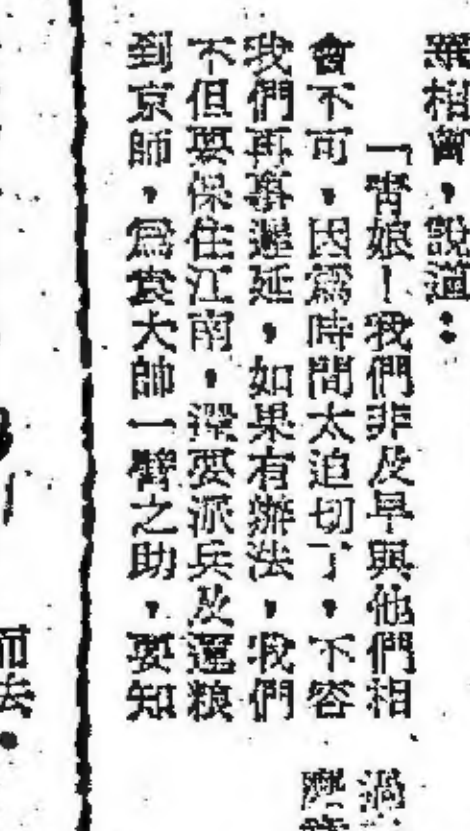 相會，說道：
「青娘！我們非及早與他們相
會不可，因為時間太迫切了，不容
我們再事遲延，如果有辦法，我們
不但要保住江南，還要派兵及運粮
到京師，為袁大帥一臂之助，要知
而去。